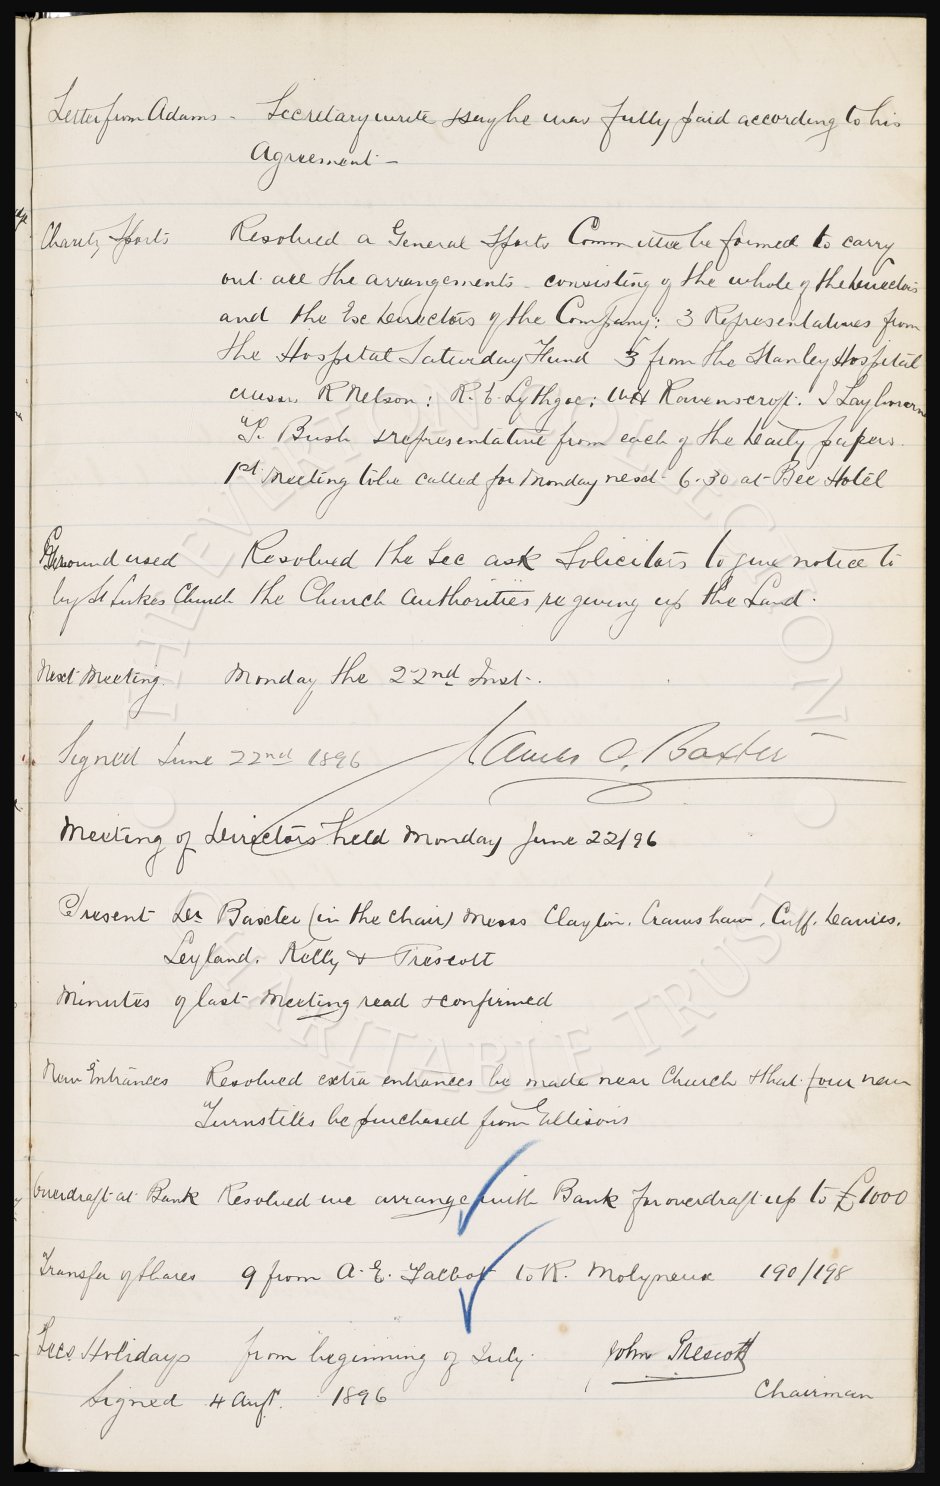 Letter from Adams - Secretary write & say he was fully paid according to his
Agreement -
Charity Sports Resolved a General Sports Committee be formed to carry
out all the arrangements - consisting of the whole of the Directors
and the Exe Directors of the Company: 3 Representatives from
the Hospital Saturday Fund 3 from the Stanley Hospital
Messrs R Nelson: R. E. Lythgoe: WH Ravenscroft.
T. Bush & representative from each of the Daily papers.
1st Meeting to be called for Monday next 6.30 at Bee Hotel
Ground used Resolved the Sec ask Solicitors to give notice to
by St Lukes Church the Church Authorities re giving up the Land.
Next Meeting. Monday the 22nd Inst.
Signed June 22nd 1896 James C. Baxter
Meeting of Directors held Monday June 22/96
Present Dr Baxter (in the chair) Messs Clayton, Crawshaw, Cuff, Davies,
Leyland, Kelly & Prescott
Minutes of last Meeting read & confirmed
New Entrances Resolved extra entrances be made near Church & that four new
Turnstiles be purchased from Ellisons
Overdraft at Bank Resolved we arrange with Bank for overdraft up to £1000
Transfer of Shares 9 from A. E. Talbot to R. Molyneux 190/198
Secs Holidays from beginning of July. John Prescott
Signed 4 Augt. 1896 Chairman
THE EVERTON COLLECTION
CHARITABLE TRUST